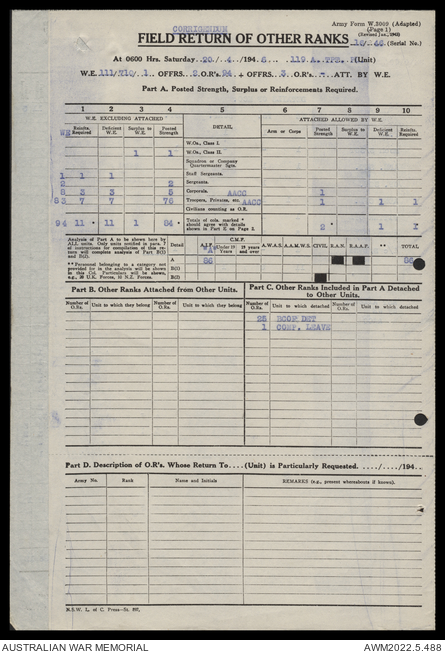 CORRIGENDUM
Army Form W.3009 (Adapted)
(Page 1)
(Revised Jan., 1945)
FIELD RETURN OF OTHER RANKS 16/46 (Serial No.)
At 0600 Hrs. Saturday 20/4/1946 119 A. TPT. (Unit)
W.E. 111/710/1 OFFRS. 2 O.R's. 94 + OFFRS. 3 O.R's. - ATT. BY W.E.
Part A. Posted Strength, Surplus or Reinforcements Required.
1 2 3 4 5 6 7 8 9 10
W.E. EXCLUDING ATTACHED DETAIL ATTACHED ALLOWED BY W.E.
WE Reinfts. Required Deficient W.E. Surplus to W.E. Posted Strength Arm or Corps Posted Strength Surplus to W.E. Deficient W.E. Reinfts. Required
W.Os., Class I.
1 1 W.Os., Class II.
Squadron or Company Quartermaster Sgts.
1 1 1 Staff Sergeants.
2 2 Sergeants.
8 3 3 5 Corporals. AACC 1
83 7 7 76 Troopers, Privates, etc. AACC 1 1 1
Civilians counting as O.R.
94 11 * 11 1 84 * Totals of cols. marked * should agree with details shown in Part E. on Page 2. 2 * 1 1
Analysis of Part A to be shown here by ALL units. Only units notified in para. 7 of instructions for compilation of this return will complete analysis of Part B(i) and B(ii).
**Personnel belonging to a category not provided for in the analysis will be shown in this Col. Particulars will be shown, e.g., 20 U.K. Forces, 10 N.Z. Forces.
Detail A.I.F. C.M.F. Under 19 Years 19 years and over A.W.A.S. A.A.M.W.S. CIVIL R.A.N. R.A.A.F. ** TOTAL
A 86 86
B(i)
B(ii)
Part B. Other Ranks Attached from Other Units. Part C. Other Ranks Included in Part A Detached to Other Units.
Number of O.Rs. Unit to which they belong Number of O.Rs. Unit to which they belong Number of O.Rs. Unit to which detached Number of O.Rs. Unit to which detached
25 BCOF DET
1 COMP. LEAVE
Part D. Description of O.R's. Whose Return To....(Unit) is Particularly Requested. ..../..../194..
Army No. Rank Name and Initials REMARKS (e.g., present whereabouts if known).
N.S.W. L. of C. Press—St. 897.
AUSTRALIAN WAR MEMORIAL AWM2022.5.488